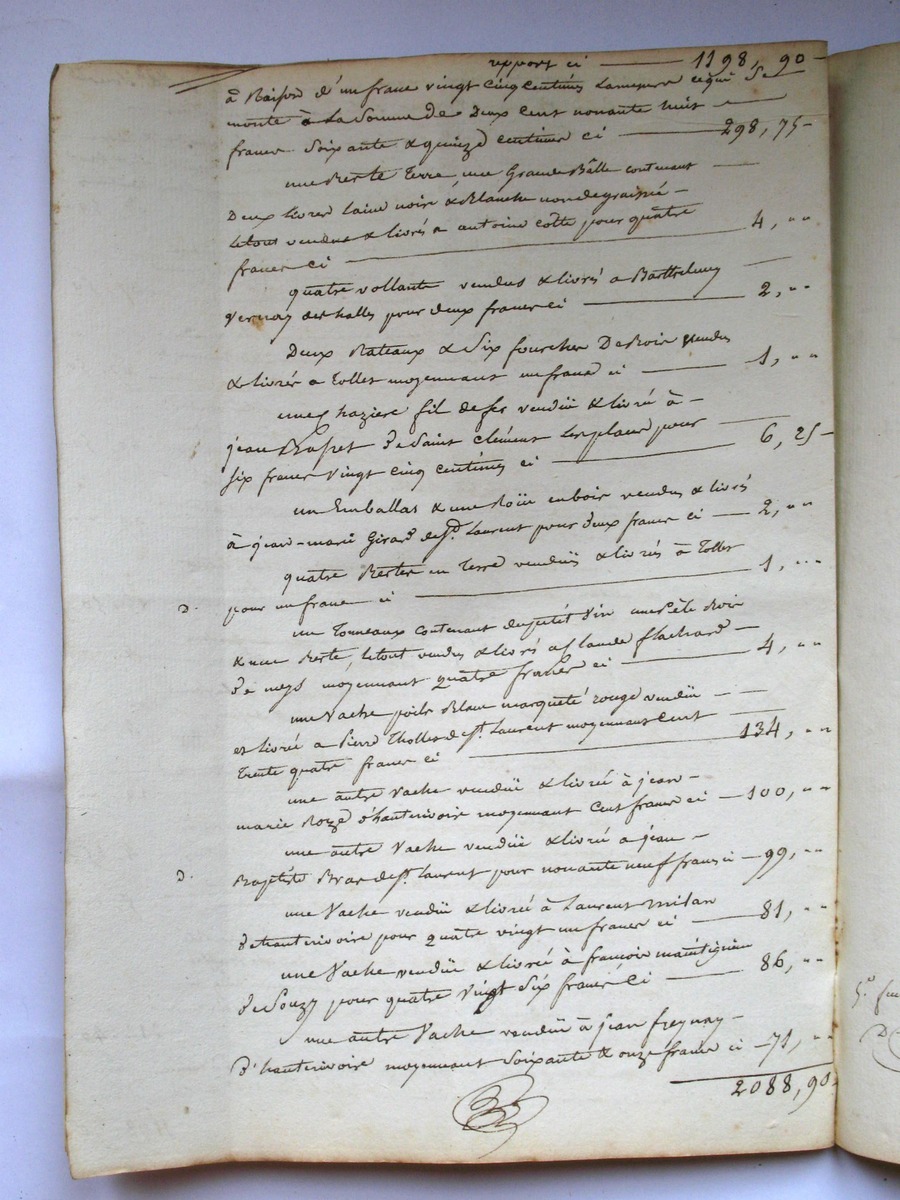 report ci 1198, 90
à Raison d'un franc vingt cinq centimes Lamesure cequi Se
monte à La Somme de Deux Cent nonante huit
francs Soixante & quinze centimes ci 298, 75
une terre, une Grande Bâlle contenant
Deux Livres laine noire & Blanche non degraissée
letout vendus & livrés a antoine Côtte pour quatre
francs ci 4, ""
quatre vollants vendus & livrés a Barthelemy
Vernay des halles pour deux francs ci 2, ""
Deux Rateaux & Six fourches De Bois vendus
& livrés a Tolles moyennant un franc ci 1, ""
une Chaziere fil de fer venduë & livré à
jean de Saint Clément Les places pour
Six francs vingt cinq centimes ci 6, 25
un Emballas & une Roüe en bois vendus & livrés
à jean-marie Girard de St. Laurent pour deux francs ci 2, ""
quatre en Terre venduës & livrés à Tolles
D. pour un franc ci 1, ""
un Tonneaux contenant du petit Vin une Bois
& une , letout vendus & livrés a Claude flachard
de meys moyennant quatre francs ci 4, ""
une Vache poils Blanc marqueté rouge venduë
et livrée a Pierre Tholles de St. Laurent moyennant Cent
Trente quatre francs ci 134, ""
une autre Vache venduë & livrée à jean
marie Roze d'hauterivoire moyennant Cent francs ci 100, ""
une autre Vache venduë & livrée a jean
D. Baptiste de St. Laurent pour nonante neuf francs ci 99, ""
une Vache venduë & livrée à Laurent milan
d'hauterivoire pour quatre vingt un francs ci 81, ""
une Vache venduë & livrée à francois
de Souzy pour quatre Vingt Six francs Ci 86, ""
une autre Vache venduë à jean freynay
d'hauterivoire moyennant Soixante & onze francs ci 71, ""
2088, 90